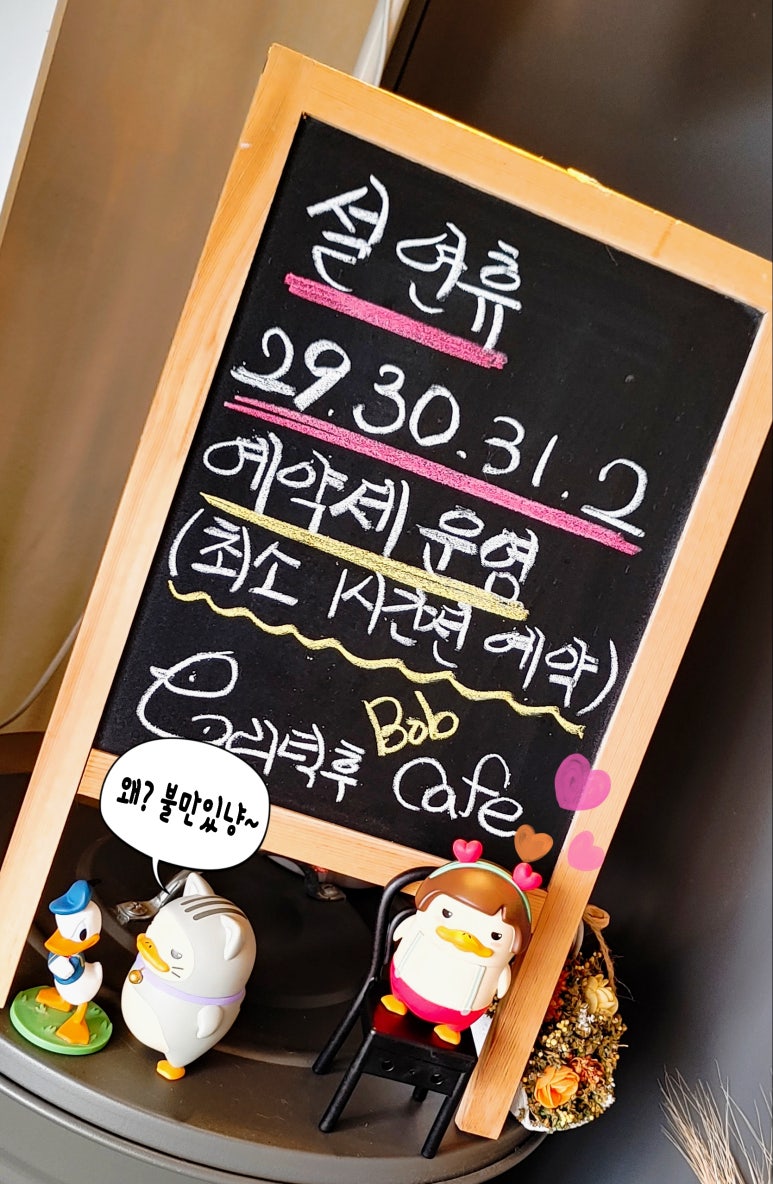 설 연휴
29. 30. 31. 2
예약제 운영
(최소 1시간전 예약)
Bob
오리덕후 Cafe
왜? 불만있냥~